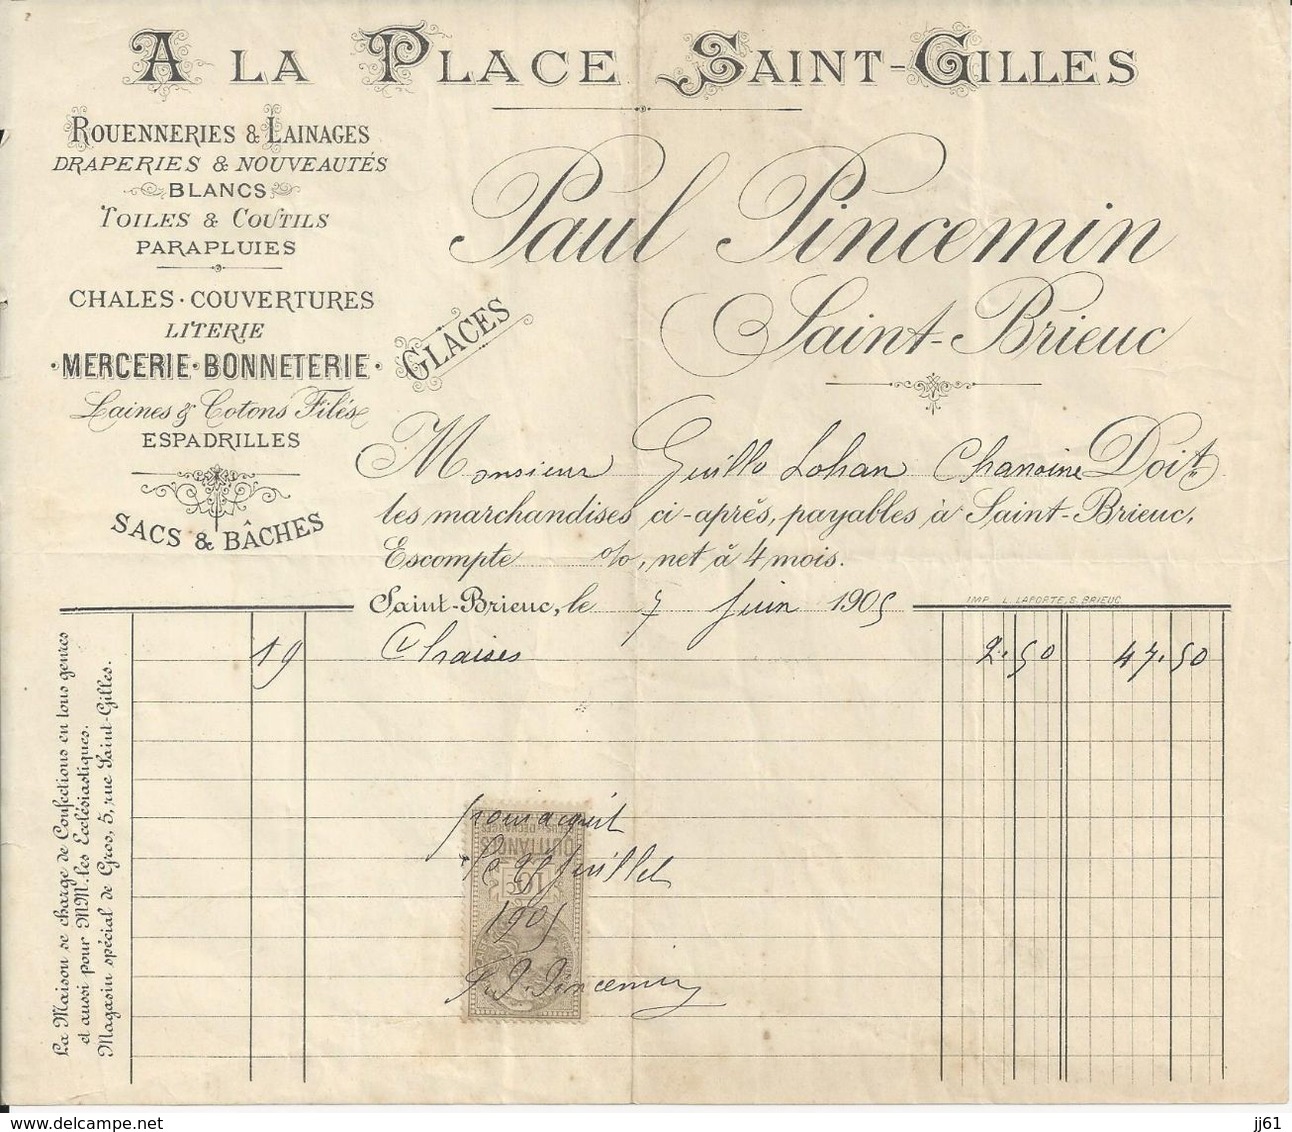 A LA PLACE SAINT-GILLES
ROUENNERIES & LAINAGES
DRAPERIES & NOUVEAUTÉS
BLANCS
TOILES & COUTILS
PARAPLUIES
CHALES · COUVERTURES
LITERIE
· MERCERIE · BONNETERIE ·
Laines & Cotons Filés
ESPADRILLES
SACS & BÂCHES
GLACES
Paul Pincemin
Saint-Brieuc
Monsieur Guillo Lohan Chanoine Doit
les marchandises ci-après, payables à Saint-Brieuc,
Escompte %, net à 4 mois.
Saint-Brieuc, le 7 Juin 1905
IMP. L. LAPORTE, S. BRIEUC
19 Chaises 2.50 47.50
La Maison se charge de Confections en tous genres
et aussi pour MM. les Ecclésiastiques.
Magasin spécial de Gros, 5, rue Saint-Gilles.
pour acquit
le Juillet
1905
Pincemin
QUITTANCES
REÇUS & DÉCHARGES
10c
www.delcampe.net
jj61